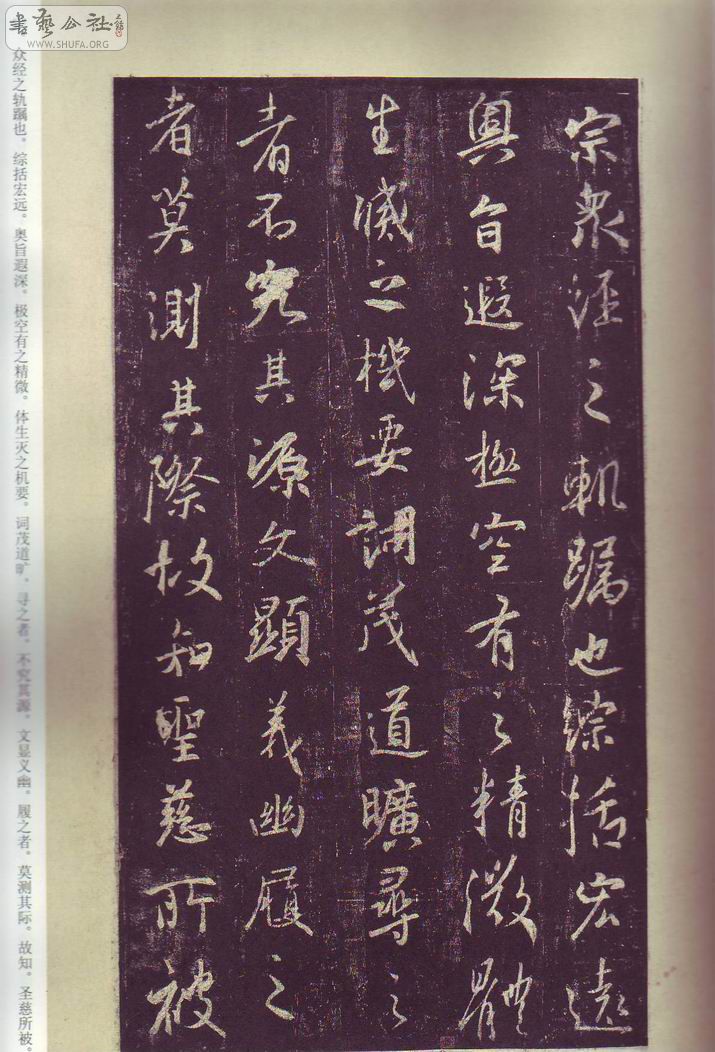 書藝公社
WWW.SHUFA.ORG
宗衆經之軌躅也綜括宏遠
奧旨遐深極空有之精微體
生滅之機要詞茂道曠尋之
者不究其源文顯義幽履之
者莫測其際故知聖慈所被
众经之轨躅也。综括宏远。奥旨遐深。极空有之精微。体生灭之机要。词茂道旷、寻之者。不究其源。文显义幽。履之者。莫测其际。故知。圣慈所被。